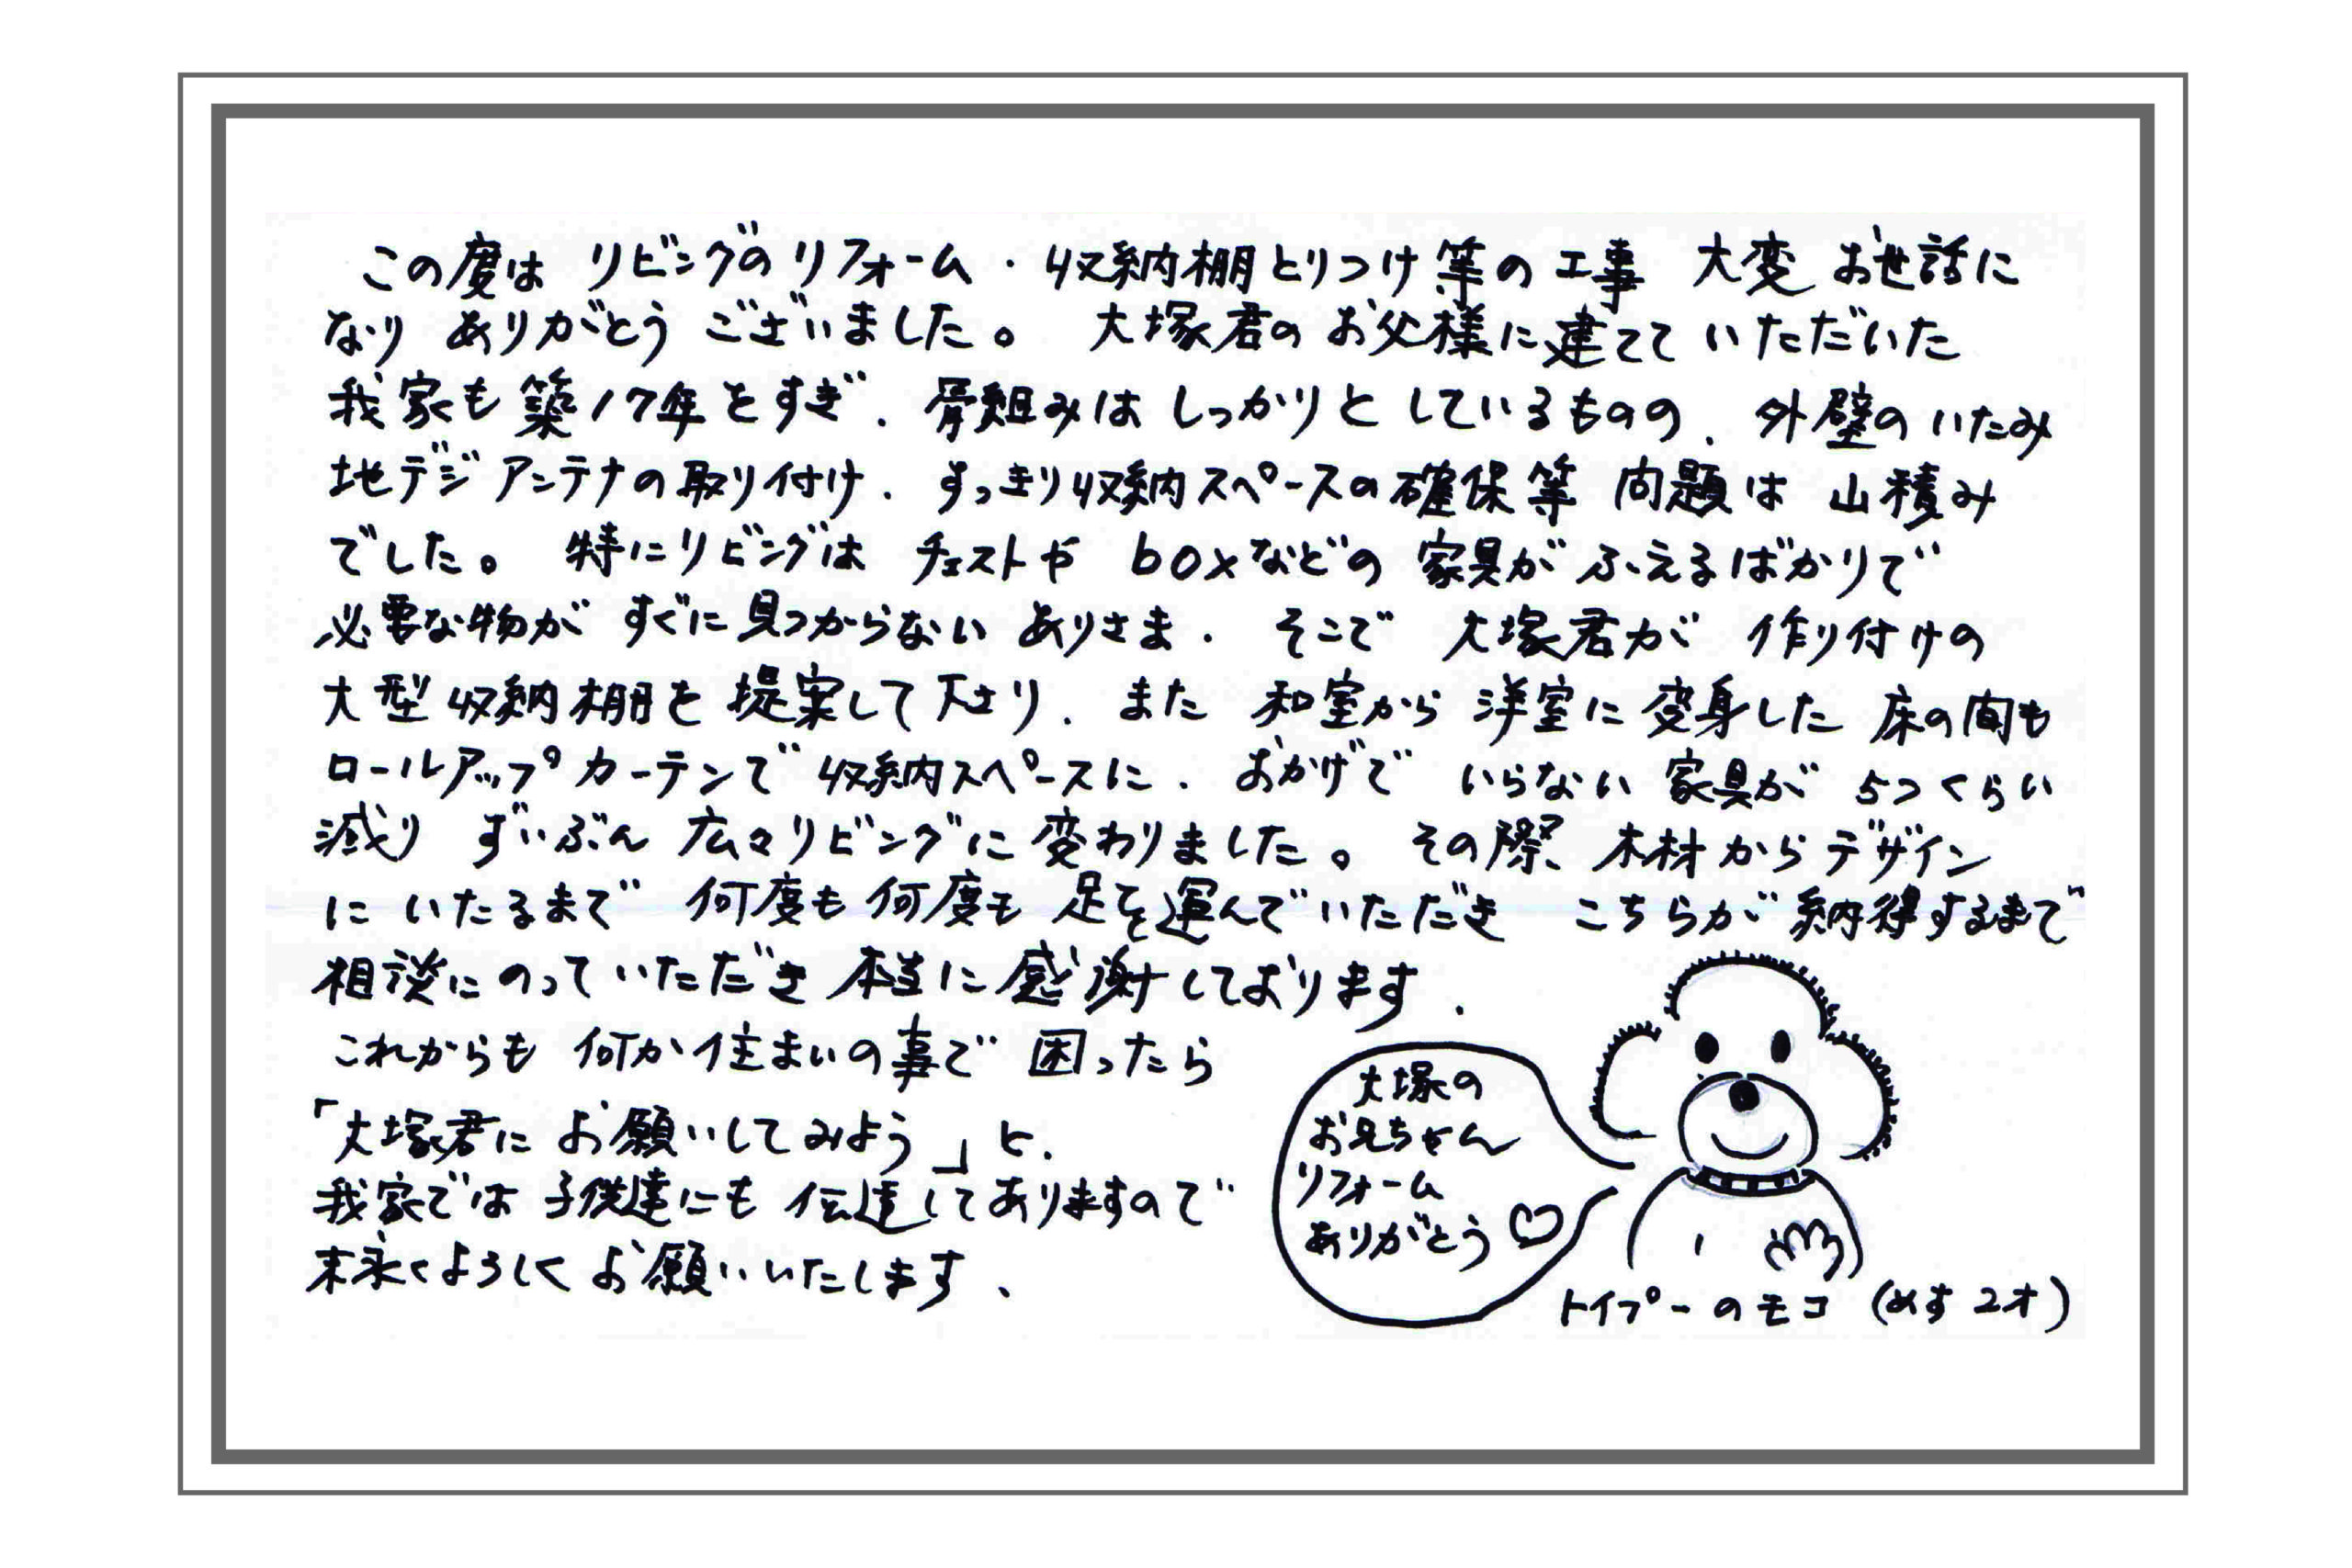 この度は リビングのリフォーム・収納棚とりつけ等の工事 大変 お世話に
なり ありがとう ございました。 大塚君のお父様に建てていただいた
我家も築17年をすぎ、骨組みは しっかりと しているものの、外壁のいたみ
地デジアンテナの取り付け、すっきり収納スペースの確保等 問題は 山積み
でした。 特にリビングは チェストや boxなどの 家具が ふえるばかりで
必要な物が すぐに見つからない ありさま、 そこで 大塚君が 作り付けの
大型収納棚を 提案して下さり、また 和室から 洋室に変身した 床の間も
ロールアップカーテンで収納スペースに、おかげで いらない 家具が 5つくらい
減り ずいぶん 広々リビングに変わりました。 その際、木材からデザイン
に いたるまで 何度も何度も 足を運んでいただき こちらが納得するまで
相談にのっていただき 本当に感謝しております、
これからも 何か住まいの事で 困ったら
「大塚君に お願いしてみよう」と、
我家では 子供達にも 伝達してありますので
末永くよろしくお願いいたします、
大塚の
お兄ちゃん
リフォーム
ありがとう♡
トイプーのモコ (めす 2才)